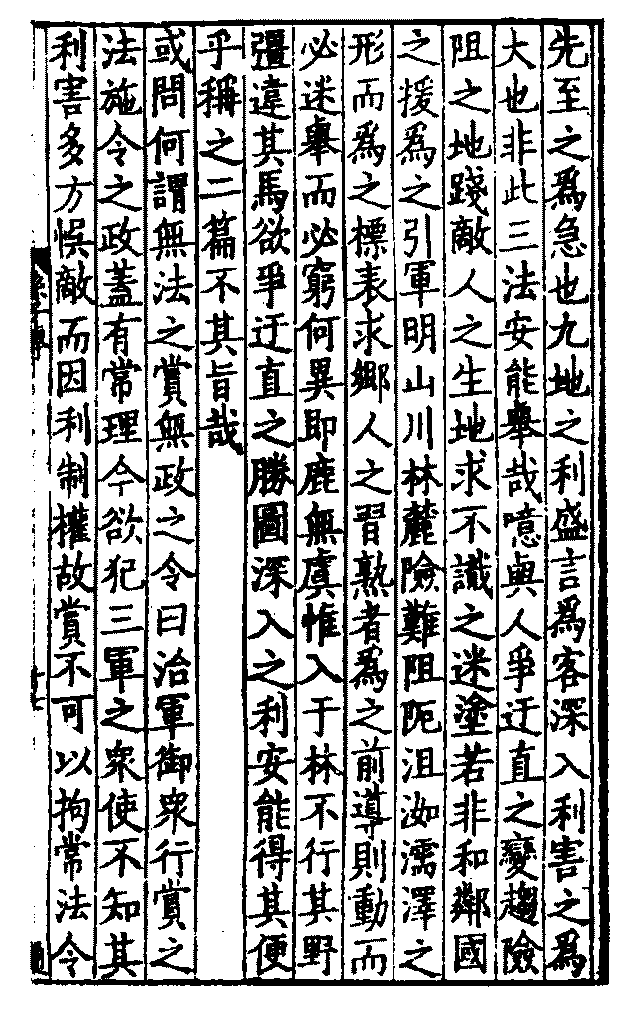 先至之爲急也九地之利盛言爲客深入利害之爲
大也非此三法安能舉哉噫與人爭迂直之變趨險
阻之地踐敵人之生地求不識之迷塗若非和鄰國
之援爲之引軍明山川林麓險難阻阨沮洳濡澤之
形而爲之標表求鄉人之習熟者爲之前導則動而
必迷舉而必窮何異即鹿無虞惟入于林不行其野
彊違其馬欲爭迂直之勝圖深入之利安能得其便
乎稱之二篇不其旨哉
或問何謂無法之賞無政之令曰治軍御衆行賞之
法施令之政蓋有常理今欲犯三軍之衆使不知其
利害多方悞敵而因利制權故賞不可以拘常法令